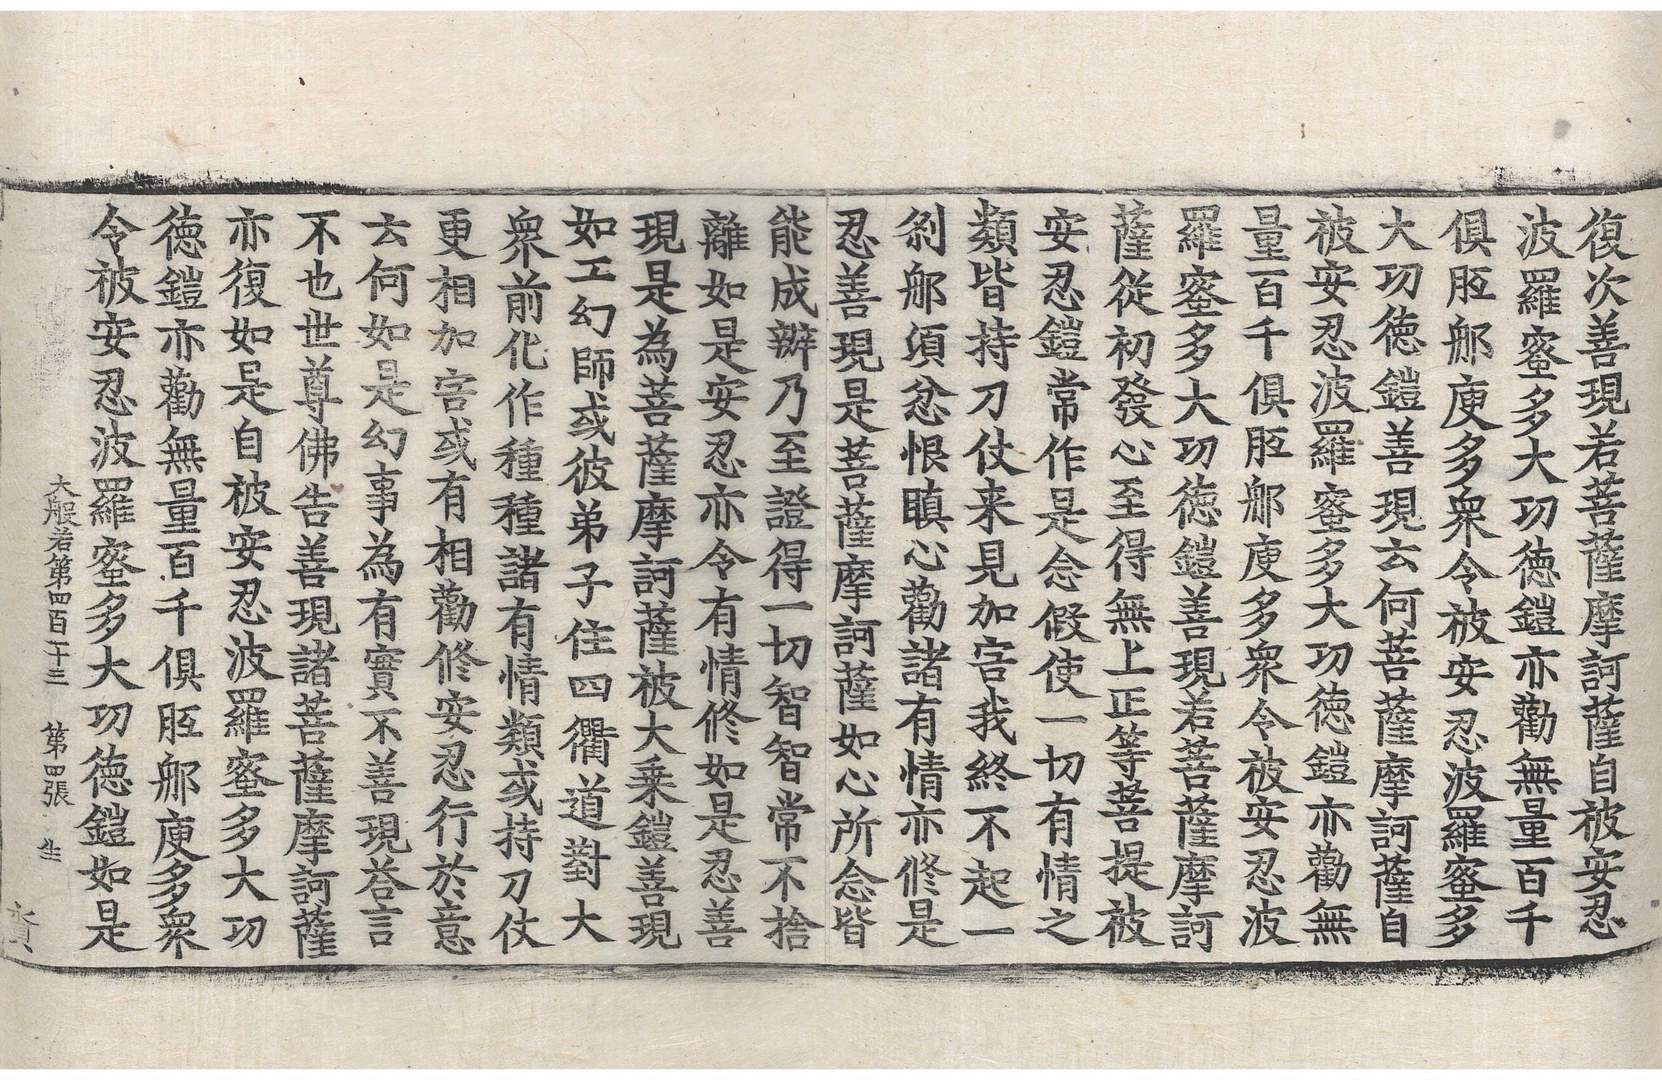 復次善現若菩薩摩訶薩自被安忍
波羅蜜多大功徳鎧亦勸無量百千
俱胝那庾多衆令被安忍波羅蜜多
大功徳鎧善現云何菩薩摩訶薩自
被安忍波羅蜜多大功徳鎧亦勸無
量百千俱胝那庾多衆令被安忍波
羅蜜多大功徳鎧善現若菩薩摩訶
薩從初發心至得無上正等菩提被
安忍鎧常作是念假使一切有情之
類皆持刀仗来見加害我終不起一
刹那頃忿恨瞋心勸諸有情亦修是
忍善現是菩薩摩訶薩如心所念皆
能成辦乃至證得一切智智常不捨
離如是安忍亦令有情修如是忍善
現是為菩薩摩訶薩被大乗鎧善現
如工幻師或彼弟子住四衢道對大
衆前化作種種諸有情類或持刀仗
更相加害或有相勸修安忍行於意
云何如是幻事為有實不善現荅言
不也世尊佛告善現諸菩薩摩訶薩
亦復如是自被安忍波羅蜜多大功
徳鎧亦勸無量百千俱胝那庾多衆
令被安忍波羅蜜多大功徳鎧如是
大般若第四百一十三 第四張 坐